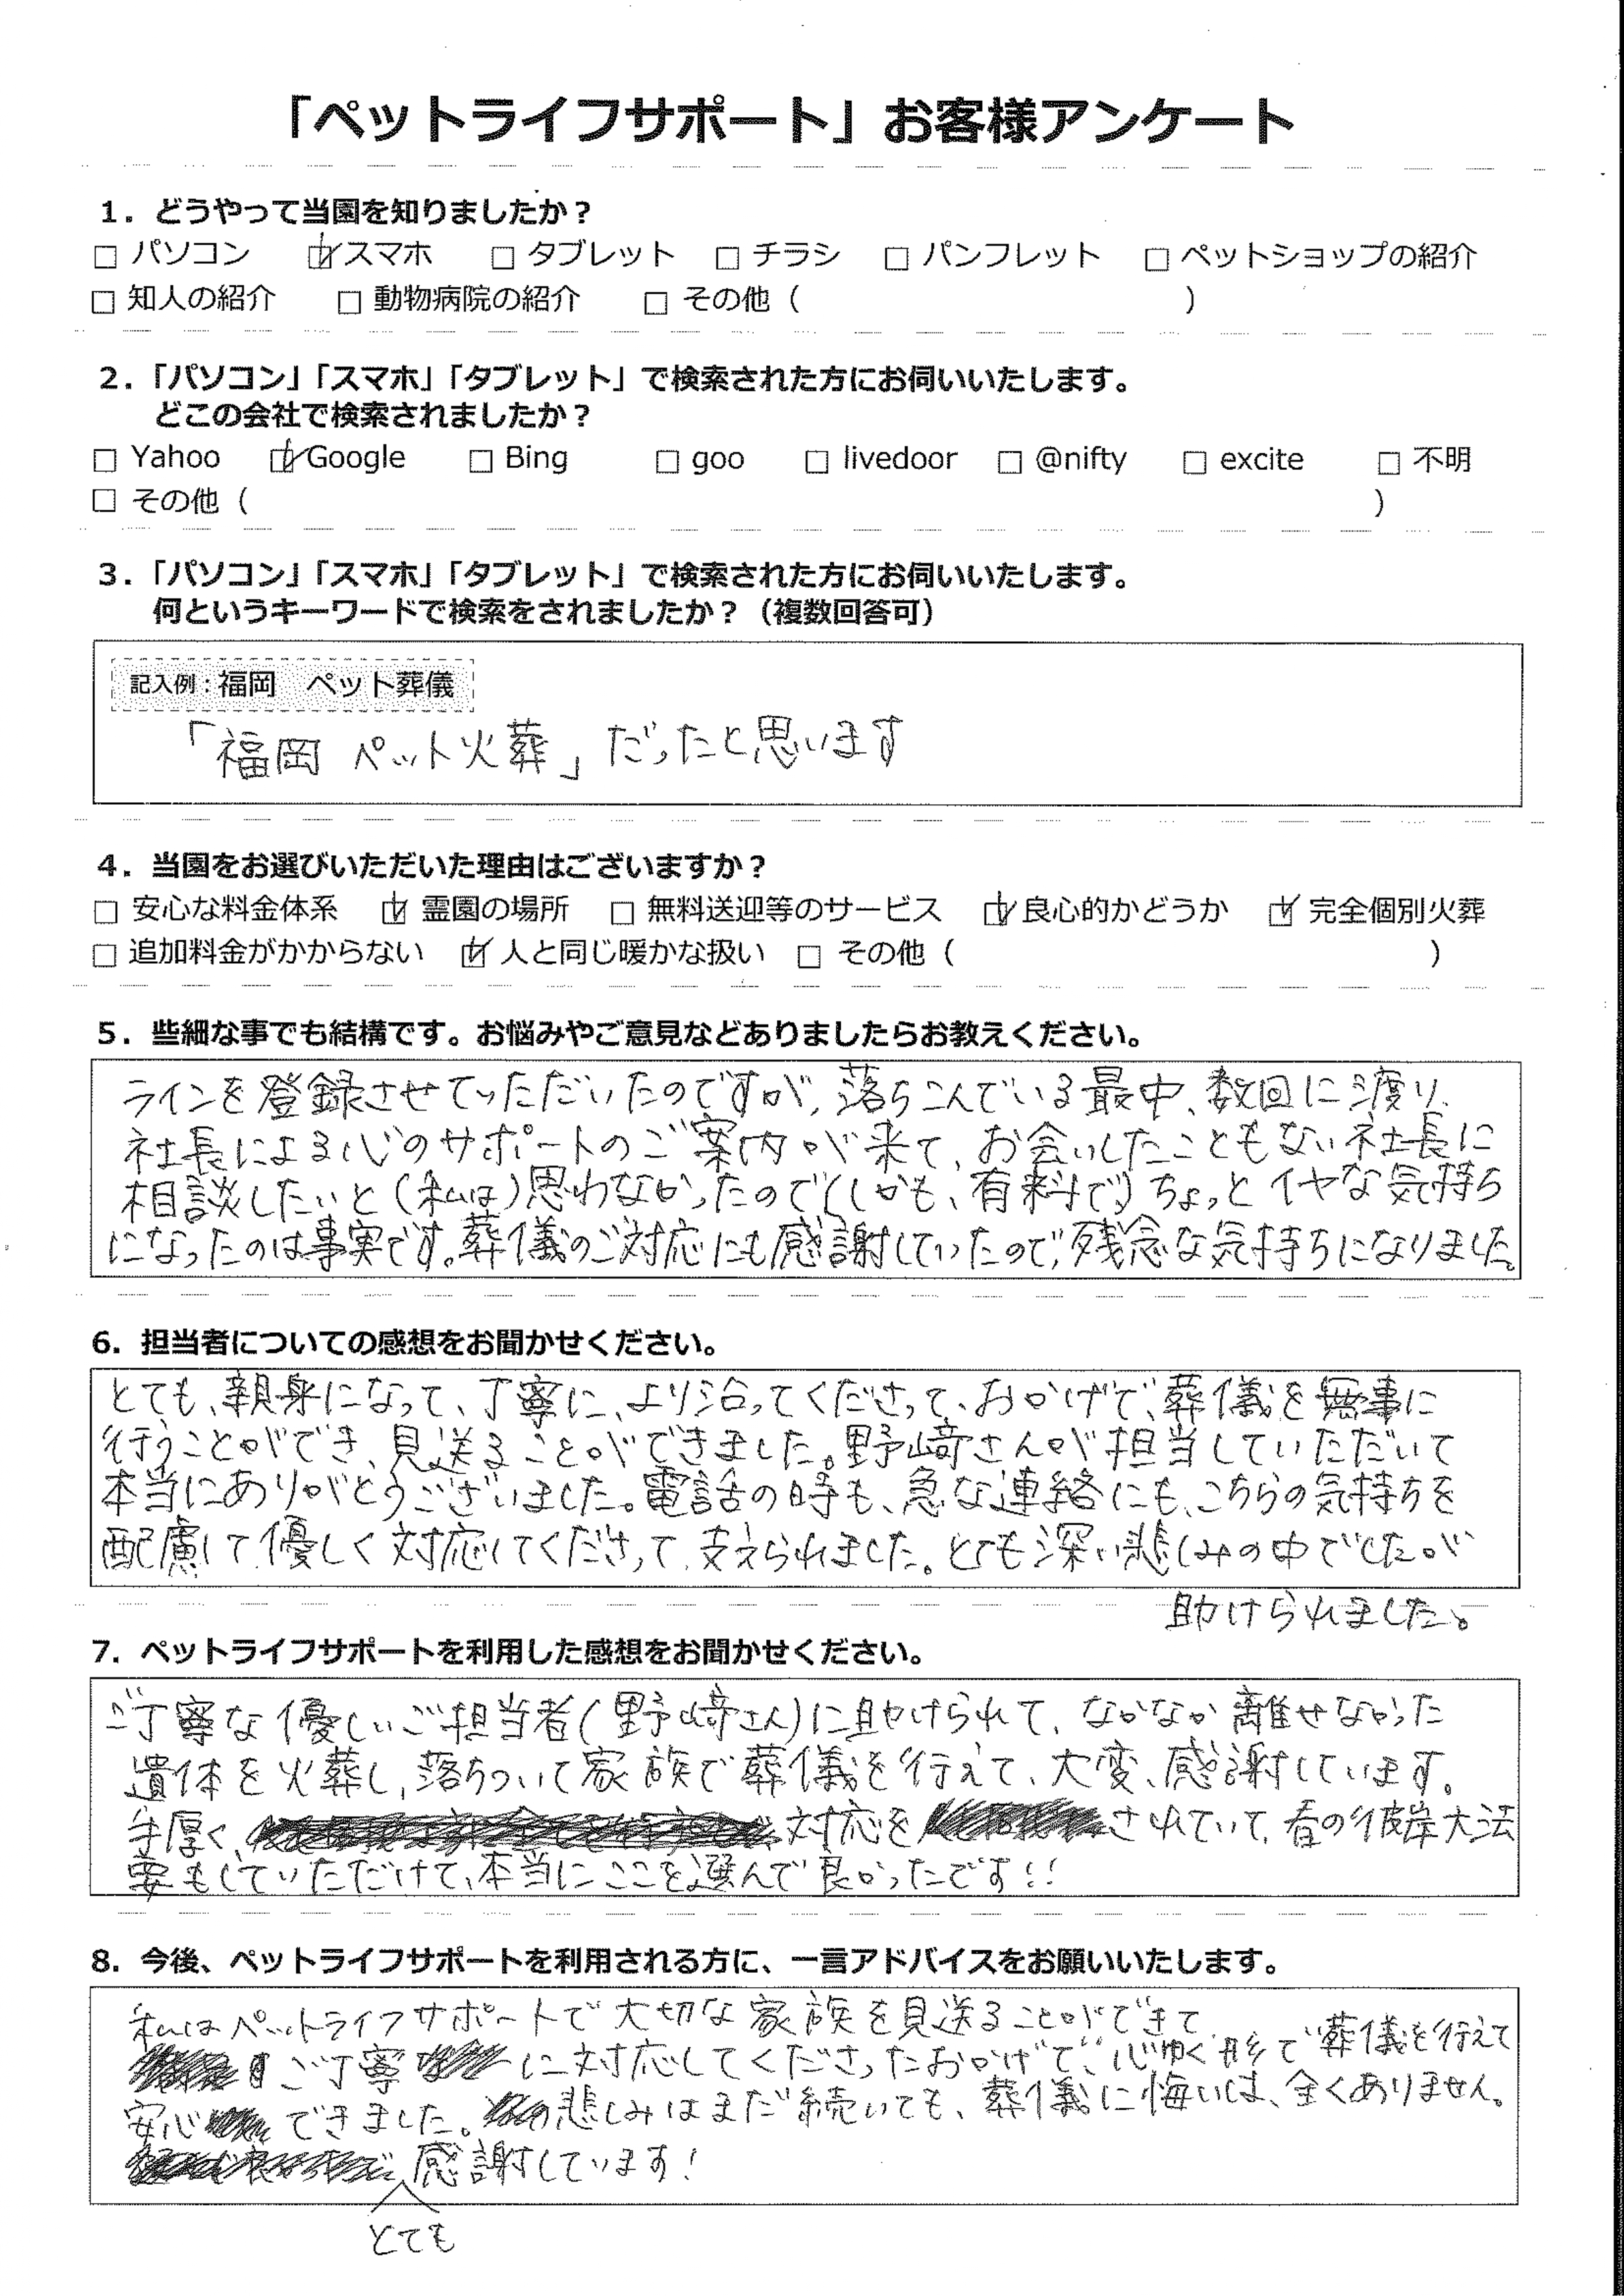 「ペットライフサポート」お客様アンケート
1．どうやって当園を知りましたか？
□ パソコン ☑ スマホ □ タブレット □ チラシ □ パンフレット □ ペットショップの紹介
□ 知人の紹介 □ 動物病院の紹介 □ その他（ ）
2．「パソコン」「スマホ」「タブレット」で検索された方にお伺いいたします。
どこの会社で検索されましたか？
□ Yahoo ☑ Google □ Bing □ goo □ livedoor □ @nifty □ excite □ 不明
□ その他（ ）
3．「パソコン」「スマホ」「タブレット」で検索された方にお伺いいたします。
何というキーワードで検索をされましたか？（複数回答可）
記入例：福岡　ペット葬儀
「福岡 ペット火葬」だったと思います
4．当園をお選びいただいた理由はございますか？
□ 安心な料金体系 ☑ 霊園の場所 □ 無料送迎等のサービス ☑ 良心的かどうか ☑ 完全個別火葬
□ 追加料金がかからない ☑ 人と同じ暖かな扱い □ その他（ ）
5．些細な事でも結構です。お悩みやご意見などありましたらお教えください。
ラインを登録させてっただいたのですが、落ちこんでいる最中、数回に渡り、
社長による心のサポートのご案内が来て、お会いしたこともない社長に
相談したいと（私は）思わなかったので（しかも、有料で）ちょっとイヤな気持ち
になったのは事実です。葬儀のご対応にも感謝していたので、残念な気持ちになりました。
6．担当者についての感想をお聞かせください。
とても、親身になって、丁寧に、より沿ってくださって、おかげで、葬儀を無事に
行うことができ、見送ることができました。野﨑さんが担当していただいて
本当にありがとうございました。電話の時も、急な連絡にも、こちらの気持ちを
配慮して優しく対応してくださって、支えられました。とても深い悲しみの中でしたが
助けられました。
7．ペットライフサポートを利用した感想をお聞かせください。
ご丁寧な優しいご担当者（野﨑さん）に助けられて、なかなか離せなかった
遺体を火葬し、落ちついて家族で葬儀を行えて、大変、感謝しています。
手厚く、対応をされていて、春の彼岸大法
要もしていただけて、本当にここを選んで良かったです！！
8．今後、ペットライフサポートを利用される方に、一言アドバイスをお願いいたします。
私はペットライフサポートで大切な家族を見送ることができて
ご丁寧に対応してくださったおかげで、心ゆく形で葬儀を行えて
安心できました。悲しみはまだ続いても、葬儀に悔いは、全くありません。
感謝しています！
とても